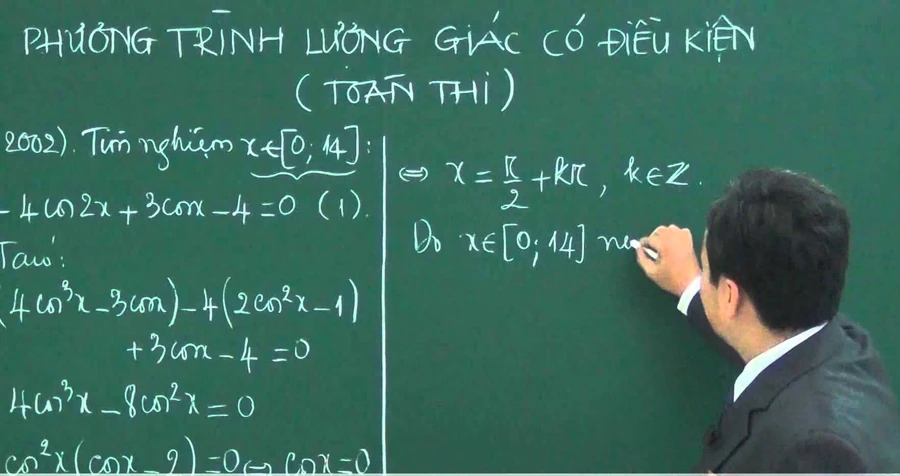 PHƯƠNG TRÌNH LƯỢNG GIÁC CÓ ĐIỀU KIỆN
(TOÁN THI)
2002). Tìm nghiệm x∈[0; 14]:
- 4cos2x + 3cosx - 4 = 0 (1).
Ta có:
(4cos³x - 3cosx) - 4(2cos²x - 1)
+ 3cosx - 4 = 0
4cos³x - 8cos²x = 0
cos²x(cosx - 2) = 0 ⇔ cosx = 0
⇔ x = π/2 + kπ, k∈Z.
Do x∈[0; 14] nê